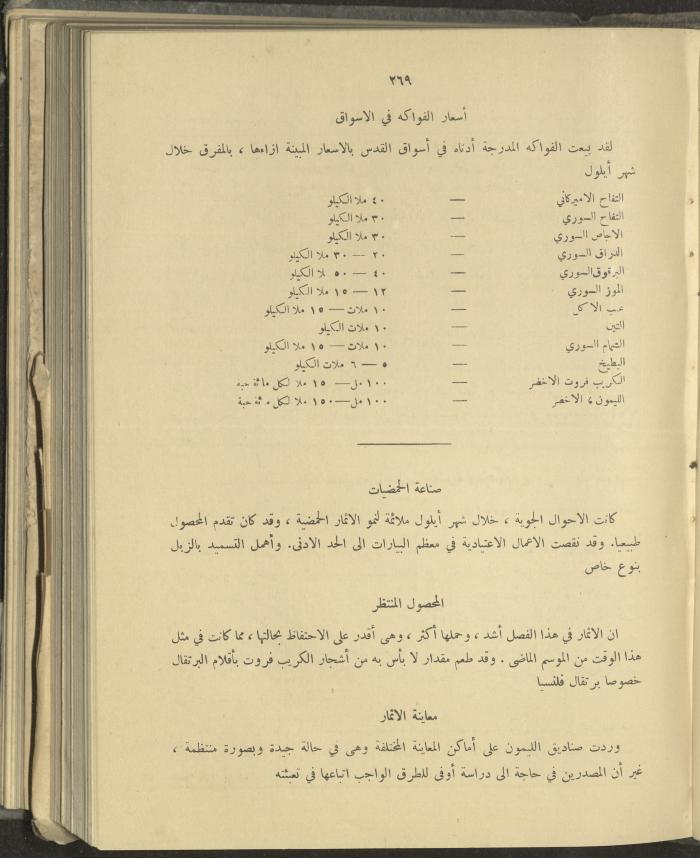 ٢٦٩
أسعار الفواكه في الاسواق
لقد بيعت الفواكه المدرجة أدناه في أسواق القدس بالاسعار المبينة ازاءها ، بالمفرق خلال
شهر أيلول
التفاح الاميركاني — ٤٠ ملا الكيلو
التفاح السوري — ٣٠ ملا الكيلو
الاجاص السوري — ٣٠ ملا الكيلو
الدراق السوري — ٢٠ — ٣٠ ملا الكيلو
البرقوق السوري — ٤٠ — ٥٠ ملا الكيلو
الموز السوري — ١٢ — ١٥ ملا الكيلو
عنب الاكل — ١٠ ملات — ١٥ ملا الكيلو
التين — ١٠ ملات الكيلو
الشمام السوري — ١٠ ملات — ١٥ ملا الكيلو
البطيخ — ٥ — ٦ ملات الكيلو
الكريب فروت الاخضر — ١٠٠ مل — ١٥٠ ملا لكل مائة حبة
الليمون الاخضر — ١٠٠ مل — ١٥٠ ملا لكل مائة حبة
صناعة الحمضيات
كانت الاحوال الجوية ، خلال شهر أيلول ملائمة لنمو الاثمار الحمضية ، وقد كان تقدم المحصول
طبيعيا. وقد نقصت الاعمال الاعتيادية في معظم البيارات الى الحد الادنى. وأهمل التسميد بالزبل
بنوع خاص
المحصول المنتظر
ان الاثمار في هذا الفصل أشد ، وحملها أكثر ، وهى أقدر على الاحتفاظ بحالتها ، مما كانت في مثل
هذا الوقت من الموسم الماضى . وقد طعم مقدار لا بأس به من أشجار الكريب فروت بأقلام البرتقال
خصوصا برتقال فلنسيا
معاينة الاثمار
وردت صناديق الليمون على أماكن المعاينة المختلفة وهى في حالة جيدة وبصورة منتظمة ،
غير أن المصدرين في حاجة الى دراسة أوفى للطرق الواجب اتباعها في تعبئته